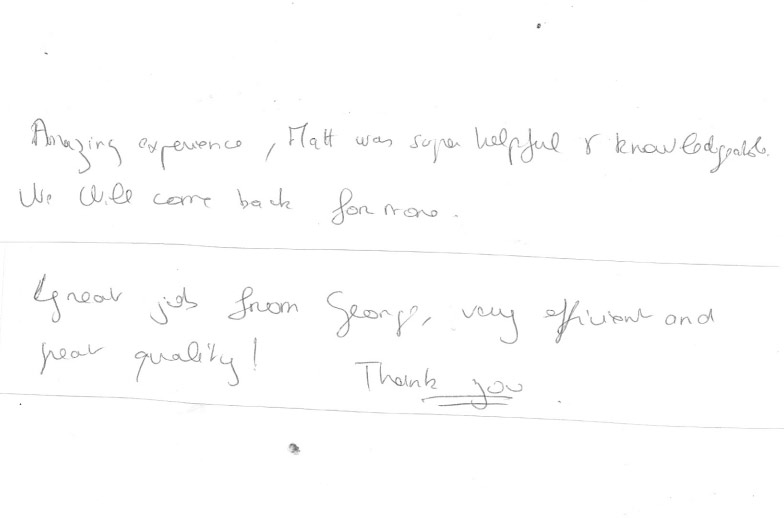 Amazing experience, Matt was super helpful & knowledgeable.
We will come back for more.
Great job from George, very efficient and
great quality!
Thank you.